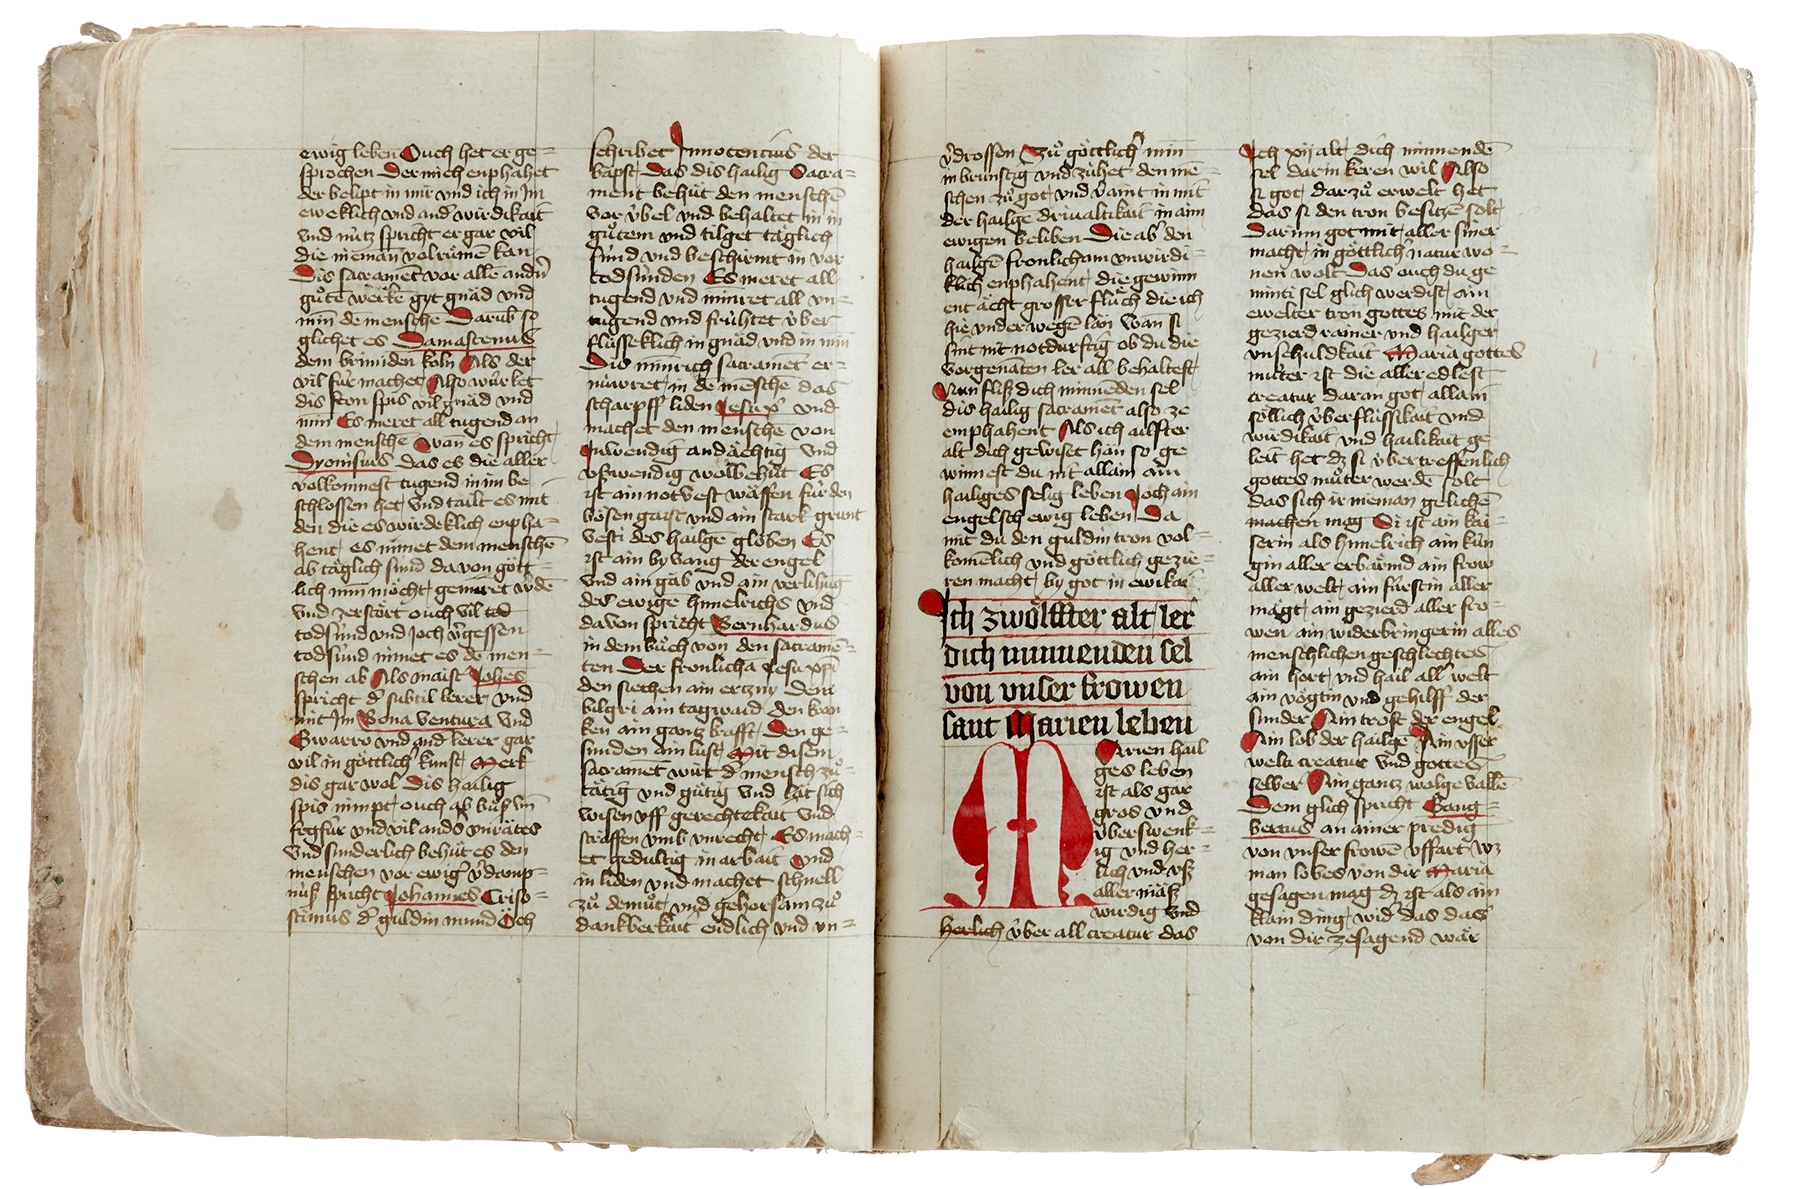 ewig leben Ouch het er ge=
sprochen Der mich enphahet
der belipt in mir vnd ich in Im
eweklich vnd and wirdikait
vnd nu̍tz spricht er gar vil
die nieman volru̍men kan
Dis sacramēt vor allē andn̄
gu̍tē werkē gyt gnăd vnd
min̄ dē menschē Darūb so
glichet es Damascenus
dem brinnden koln Als der
vil fu̍r machet Also wu̍rket
dis fron spis vil gnăd vnd
min̄ Es meret all tugend an
dem menschē Wan es spricht
Dyonisius das es die aller
volkomnest tugend in im be
schlossen het, vnd tailt es mit
den die es wirdeklich enpha=
hent, es nimet dem menschē
ab täglich su̍nd da von gött=
lich min̄ möcht gemīret v̍dē
vnd zerstört ouch vil tod
todsu̍nd vnd joch v̍gessen
todsu̍nd nimet es dē men=
schen ab Als maist Johēs
spricht d̄ subtil lerer vnd
mit Im Bona ventura vnd
Swarro vnd and lerer gar
vil in göttlich̍ kunst Merk
dis gar wol Dis hailig
spis nimpt ouch ab bu̍ß im̄
fegfu̍r vnd vil and̍s vnrätes
Vnd sunderlich behu̍t es den
menschen vor ewig̍ v̍damp=
nu̍ß spricht Johannes Criso=
stimus d̄ guldin mund Och
schribet Innocencius der
bapst Das dis hailig Sacra=
ment behu̍t den menschē
vor v̍bel vnd behaltet in in
gůtem vnd tilget täglich
su̍nd vnd beschirmt in vor
todsu̍nden Es meret all
tugend vnd minret all vn=
tugend vnd fru̍htet v̍ber
flu̍sseklich in gnăd vnd in min̄
Dis minrich sacramēt er=
nu̍wret in dē menschē das
scharpff liden Jesu xp̍i vnd
machet den menschē von
Inwendig andächtig vnd
vßwendig wolbehu̍t Es
ist ain notvest wăffen fu̍r den
bösen gaist vnd ain stark grunt
vesti des hailgē globen Es
ist ain bywang der engel
vnd ain găb vnd ain verlihūg
des ewigē himelrichs vnd
da von spricht Bernhardus
in dem bu̍ch von den sacramē=
ten Der fronlicha Jesu xp̄i
den siechen ain ertzny Dem
bilgri ain tagwaid den kran
ken ain gantz krafft, Den ge=
sunden ain lust Mit disem
sacramēt wirt d̄ mensch zů=
tätig vnd gu̍tig vnd lăt sich
wisen vff gerechtekait vnd
străffen vmb vnrecht Es mach=
et gedultig in arbait vnd
in liden vnd machet schnell
zů demu̍t vnd gehorsam zů
dankberkait endlich vnd vn=
v̍drossen Zů göttlich̍ min̄
inbru̍nstig vnd zu̍het den mē=
schen zů got, vnd v̍aint in mit
der hailgē driualtikait in aim
ewigen beliben Die ab̍ den
hailgē fronlicham vnwirdi=
klich enphahent, die gewinn
ent ächt grosser flu̍ch die ich
hie vnder wegē lăn Wan si
sint nit notdu̍rftig ob du die
vorgenāten ler all behaltest
Nun fliß dich minnēden sel
dis hailig sacramēt also ze
emphahent Als ich ailfter
alt dich gewiset hăn so ge
winnest du nit allain ain
hailiges selig leben Joch ain
engelsch ewig leben Da
mit du den guldin tron vol=
komēlich vnd göttlich gezie=
ren macht, by got in ewikait
Ich zwölffter alt ler
dich minnenden sel
von vnser frowen
sant Marien leben
Marien hail
ges leben
ist als gar
gros vnd
v̍berswenk=
ig vnd her=
lich vnd vß
aller măß
wirdig vnd
herlich v̍ber all creatur das
Ich xij alt, dich minnendē
sel darin keren wil Also
si got darzů erwelt het
das si den tron besitzē solt,
Dar inn got mit aller siner
macht, in göttlich̍ natur wo=
nen wolt Das ouch du ge
minti sel glich werdist, ain
erwelter tron gottes mit der
gezierd rainer vnd hailger
vnschuldkait Maria gottes
mu̍ter ist die aller edlest
creatur daran got, allain
söllich v̍berflu̍ssikait vnd
wirdikait vnd hailikait ge
leit het dz si v̍bertreffenlich
gottes mu̍ter werdē solt
das sich ir nieman gelichē
machen mag Si ist ain kai=
serin als himelrich ain ku̍n
gin aller erbărmd ain frow
aller welt, ain fu̍rstin aller
mägt, ain gezierd aller fro=
wen ain widerbringerin alles
menschlichen geschlechtes
ain hort, vnd hail all̍ welt
ain vögtin vnd gehilff der
su̍nder Ain trost der engel
Ain lob der hailgē Ain vsser
welti creatur vnd gottes
selber Ain gantz wolgevallē
Dem glich spricht Gang=
bertus an ainer predig
von vnser frowē vffart wz
man lobes von dir Maria
gesagen mag dz ist als ain
klain ding, wid̍ das das
von dir ze sagend wär